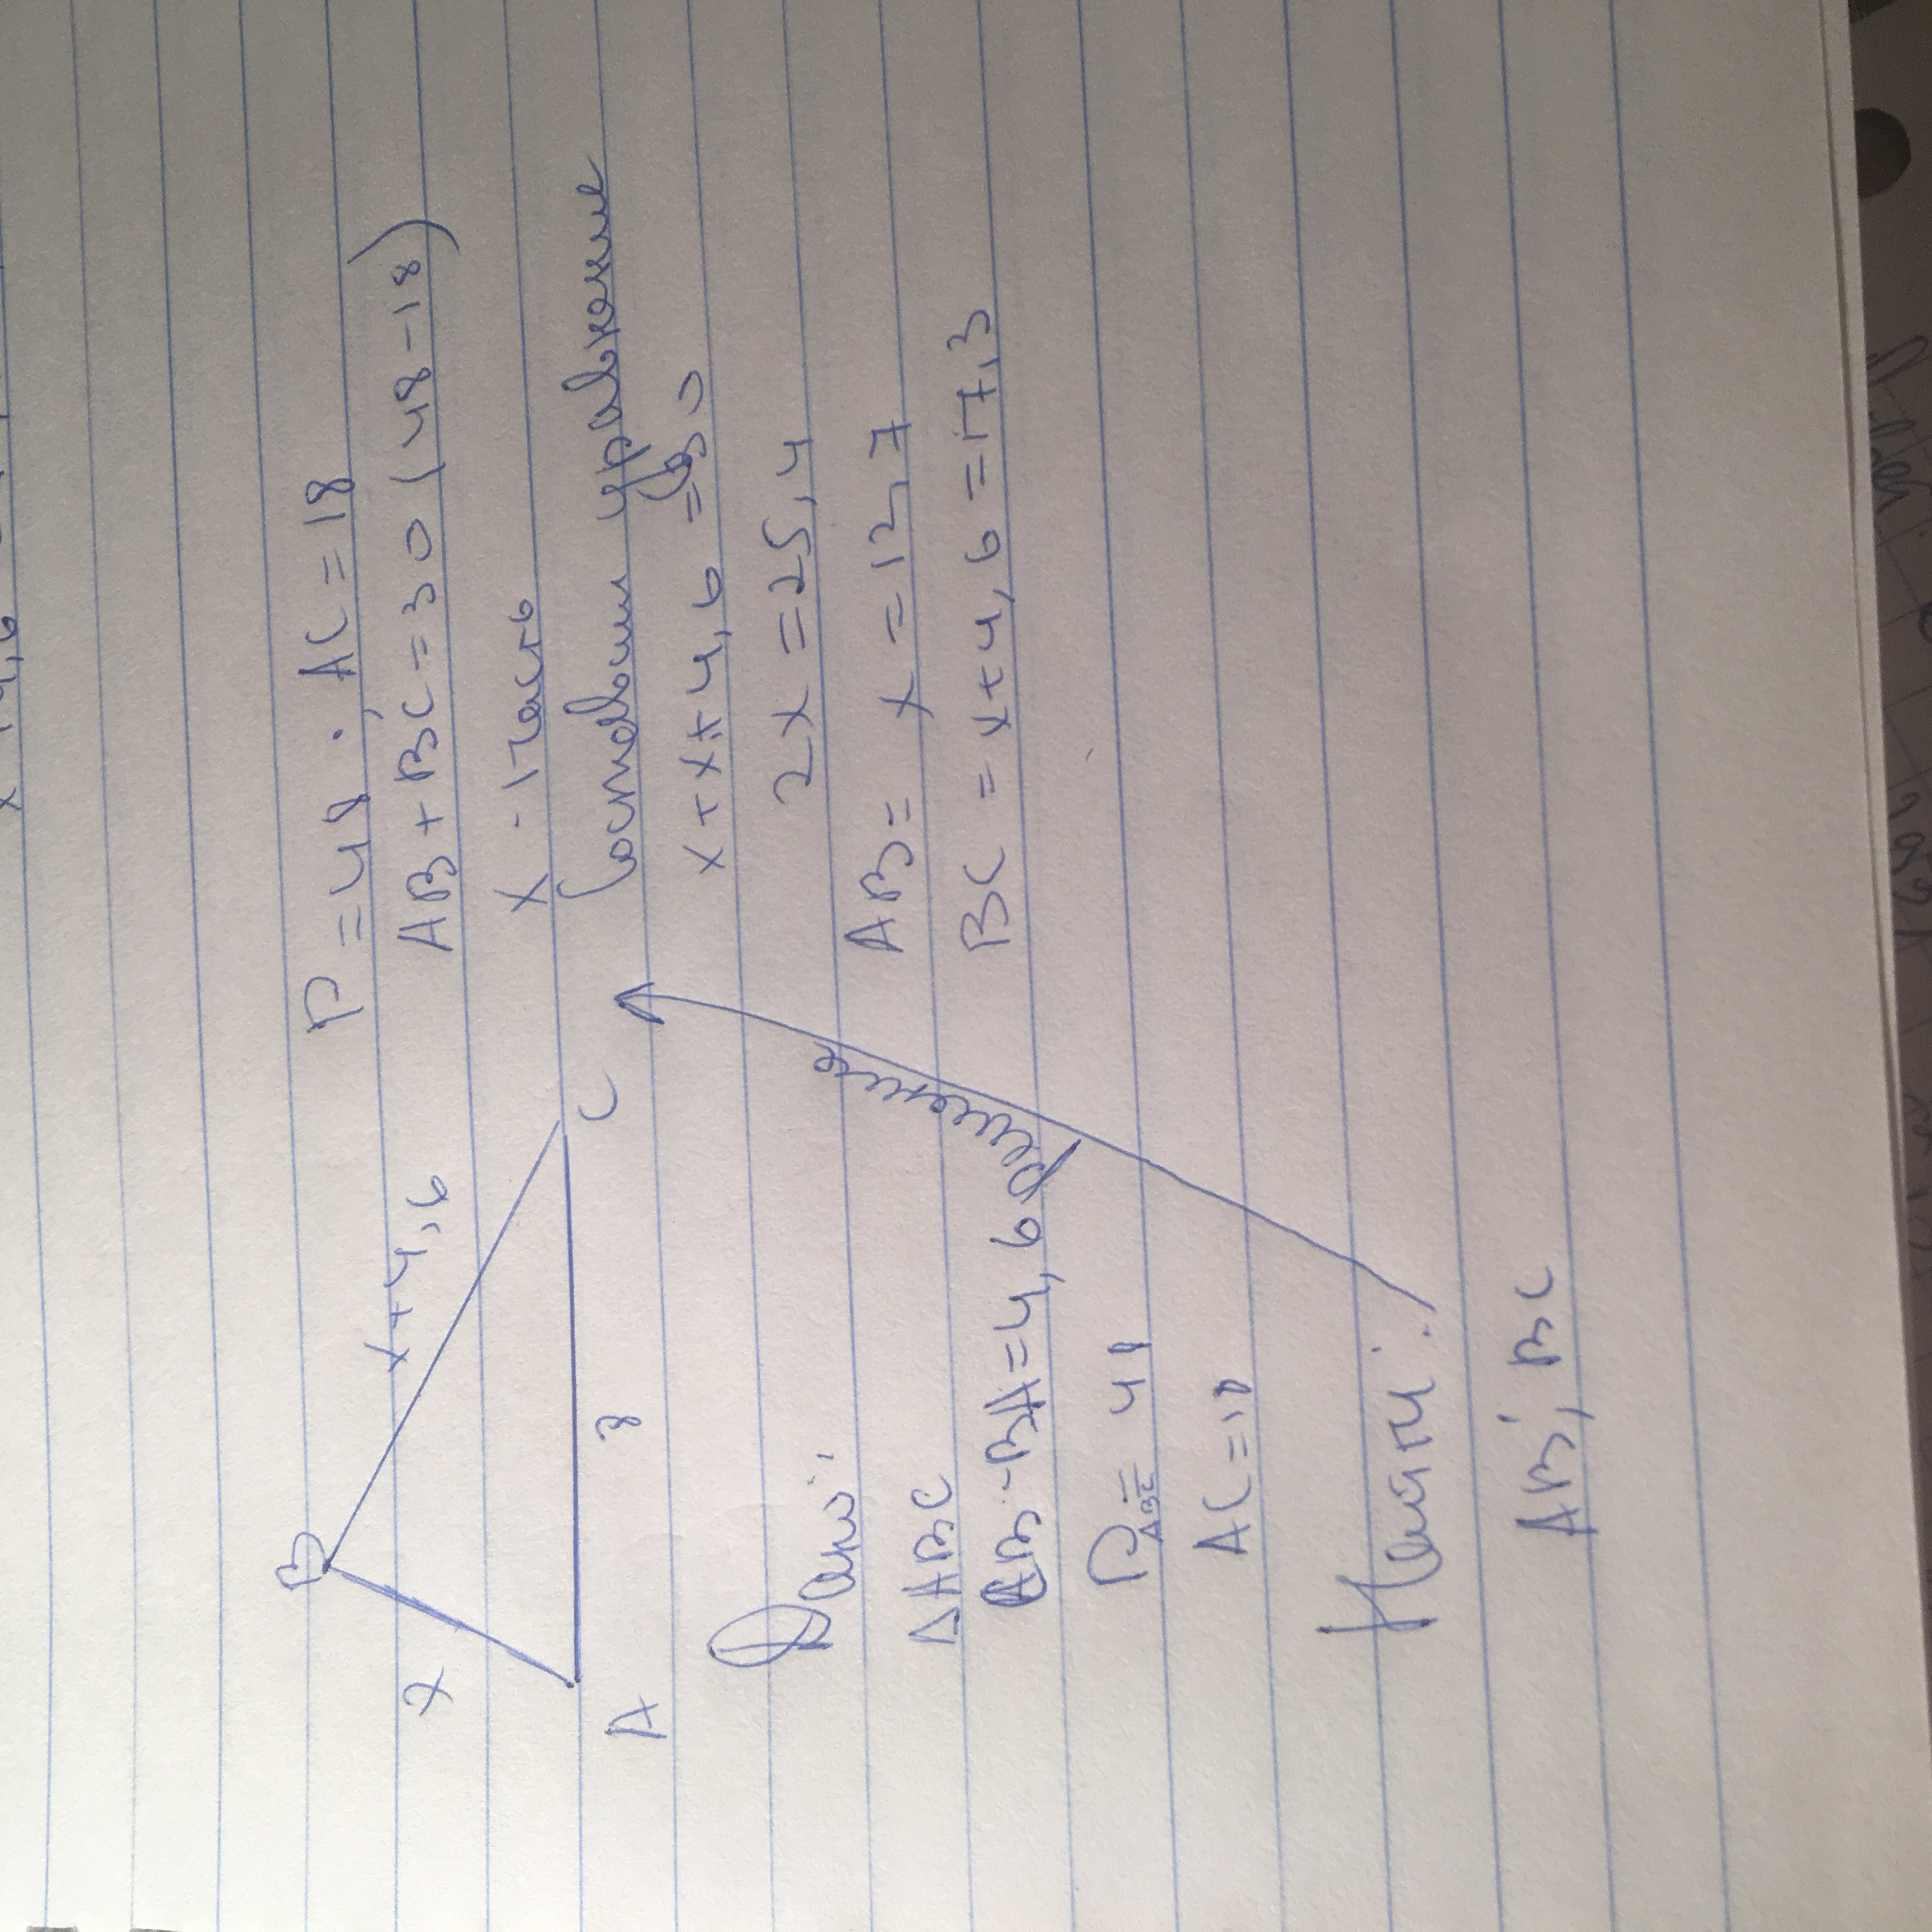 B
x
x+4,6
A
8
C
P=48. AC=18
AB+BC=30(48-18)
x - 1 часть
Составим уравнение
x+x+4,6=30
2x=25,4
AB= x=12,7
BC = x+4,6=17,3
Дано:
ΔABC
AB-BA=4,6 решение
P ABC = 48
AC=18
AB, BC